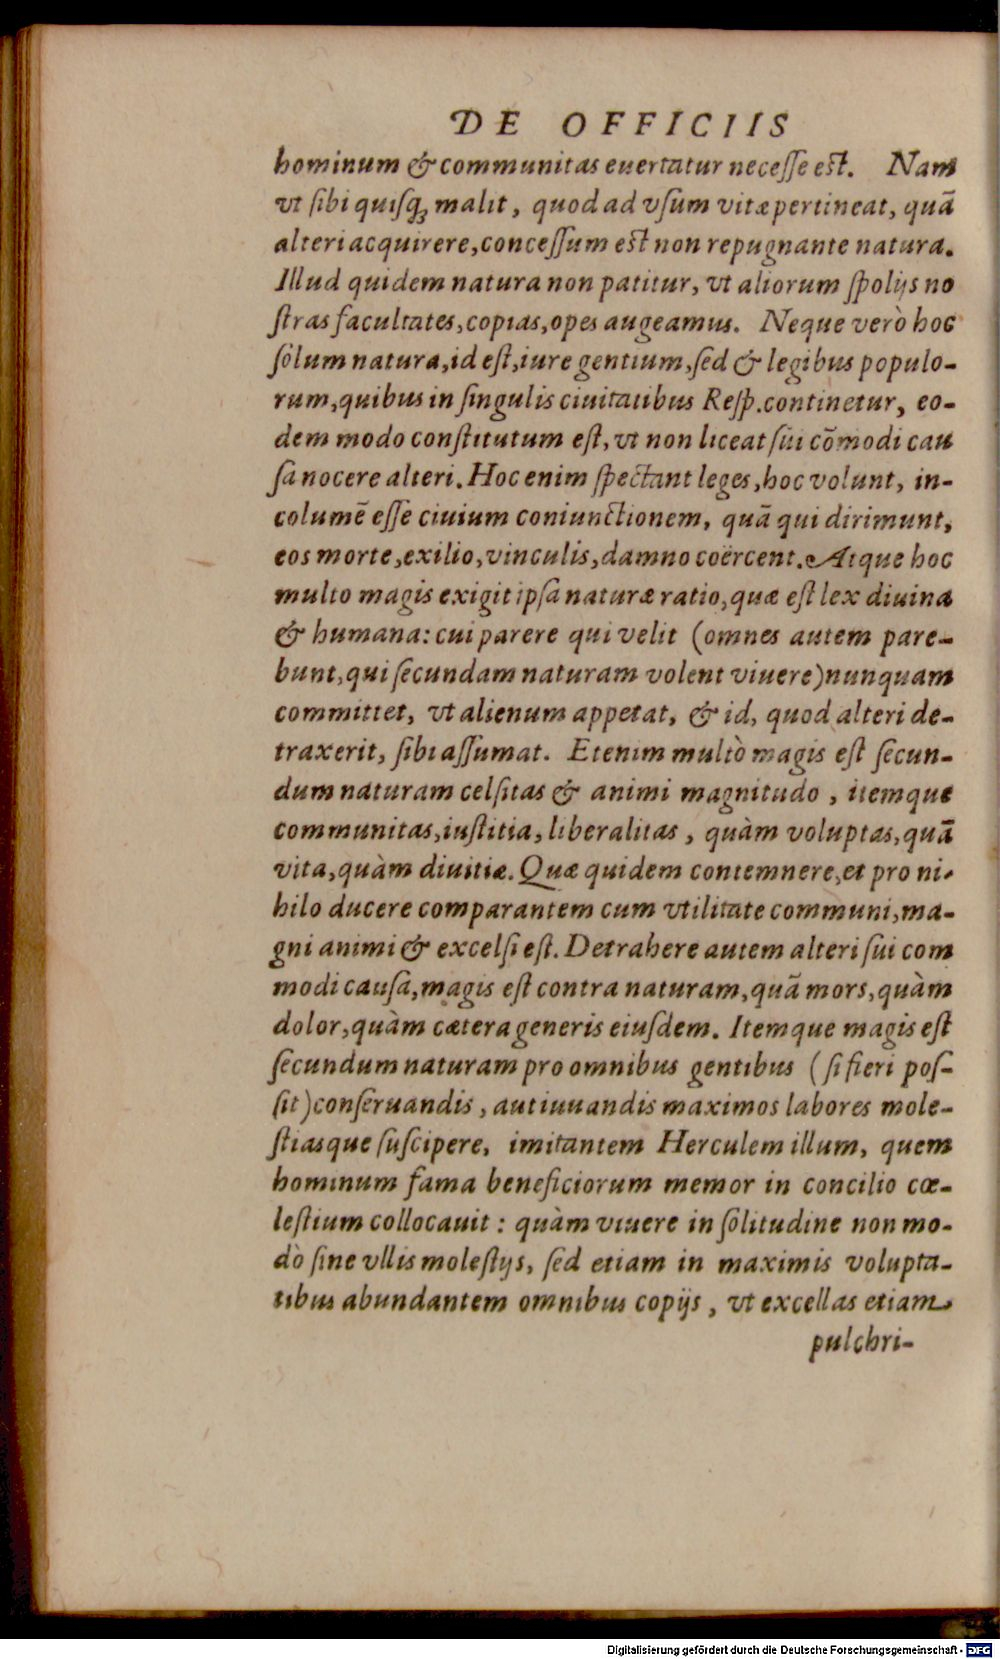 DE OFFICIIS
hominum & communitas euertatur necesse est. Nam
vt sibi quisq; malit, quod ad vsum vitæ pertineat, quā
alteri acquirere, concessum est non repugnante natura.
Illud quidem natura non patitur, vt aliorum spolijs no
stras facultates, copias, opes augeamus. Neque verò hoc
sòlum natura, id est, iure gentium, sed & legibus populo-
rum, quibus in singulis ciuitatibus Resp. continetur, eo-
dem modo constitutum est, vt non liceat sui cōmodi cau
sa nocere alteri. Hoc enim spectant leges, hoc volunt, in-
columē esse ciuium coniunctionem, quā qui dirimunt,
eos morte, exilio, vinculis, damno coërcent. Atque hoc
multo magis exigit ipsa naturæ ratio, quæ est lex diuina
& humana: cui parere qui velit (omnes autem pare-
bunt, qui secundam naturam volent viuere) nunquam
committet, vt alienum appetat, & id, quod alteri de-
traxerit, sibi assumat. Etenim multò magis est secun-
dum naturam celsitas & animi magnitudo, itemque
communitas, iustitia, liberalitas, quàm voluptas, quā
vita, quàm diuitiæ. Quæ quidem contemnere, et pro ni-
hilo ducere comparantem cum vtilitate communi, ma-
gni animi & excelsi est. Detrahere autem alteri sui com
modi causa, magis est contra naturam, quā mors, quàm
dolor, quàm cætera generis eiusdem. Itemque magis est
secundum naturam pro omnibus gentibus (si fieri pos-
sit) conseruandis, aut iuuandis maximos labores mole-
stiasque suscipere, imitantem Herculem illum, quem
hominum fama beneficiorum memor in concilio cœ-
lestium collocauit: quàm viuere in solitudine non mo-
dò sine vllis molestijs, sed etiam in maximis volupta-
tibus abundantem omnibus copijs, vt excellas etiam
pulchri-
Digitalisierung gefördert durch die Deutsche Forschungsgemeinschaft - DFG